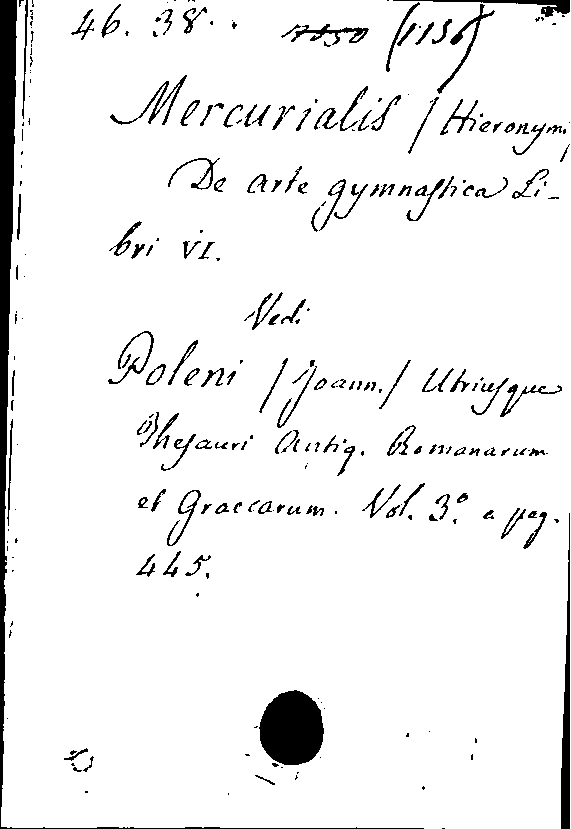 46. 38. . 7050 (1136)
Mercurialis / Hieronymi
De arte gymnastica Li-
bri VI.
Vedi
Poleni / Joann. / Utriusque
Thesauri Antiq. Romanarum
et Graecarum. Vol. 3.º a pag.
445.